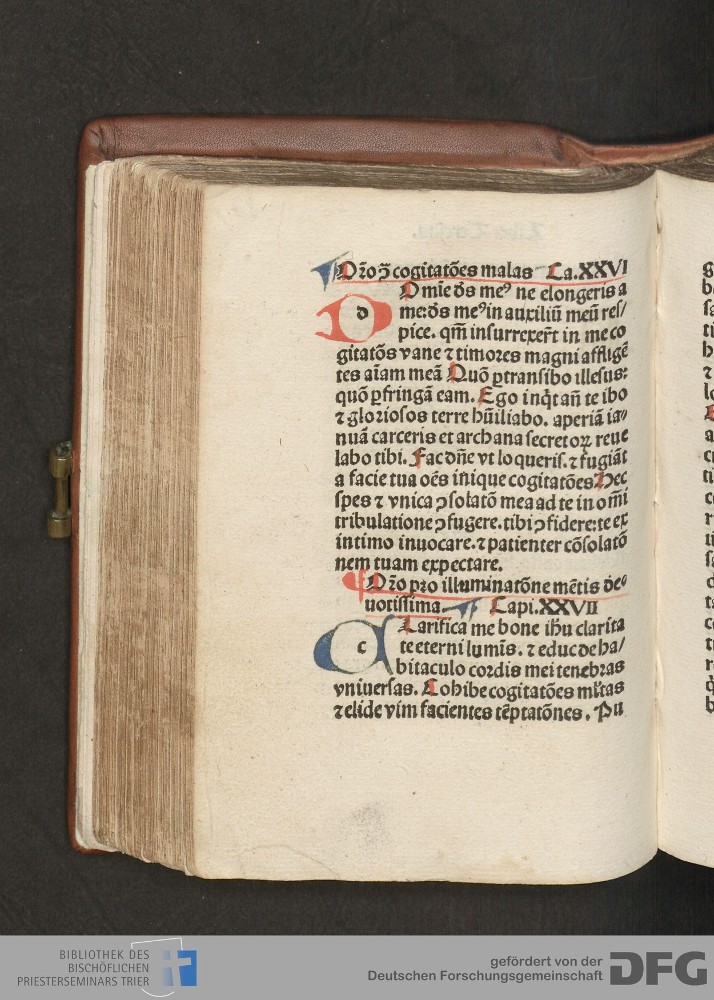 Ořo ꝯ̃ cogitatões malas Ca.XXVI
Omĩe d̃s meꝰ ne elongeris a
d me: d̃s meꝰ in auxiliũ meũ reſ/
pice. qm̃ inſurrexer̃t in me co
gitatõs vane ⁊ timores magni affligẽ
tes aĩam meã Quõ ꝑtranſibo illeſus:
quõ ꝑfringã eam. Ego inq̃t añ te ibo
⁊ glorioſos terre hũiliabo. aperiã ia⸗
nuã carceris et archana ſecretoꝝ reue
labo tibi. Fac dñe vt loqueris. ⁊ fugiãt
a facie tua oẽs iñique cogitatões Hec
ſpes ⁊ vnica ꝯſolatõ mea ad te in om̃i
tribulatione ꝯfugere. tibi ꝯfidere: te ex
intimo inuocare. ⁊ patienter cõſolatõ
nem tuam expectare.
Ořo pro illuminatõne mẽtis de⸗
uotiſſima. Capi.XXVII
Clarifica me bone ih̃u clarita
c te eterni lumĩs. ⁊ educ de ha/
bitaculo cordis mei tenebras
vniuerſas. Cohibe cogitatões ml̃tas
⁊ elide vim facientes tẽptatões. Pu
BIBLIOTHEK DES
BISCHÖFLICHEN
PRIESTERSEMINARS TRIER
gefördert von der
Deutschen Forschungsgemeinschaft
DFG